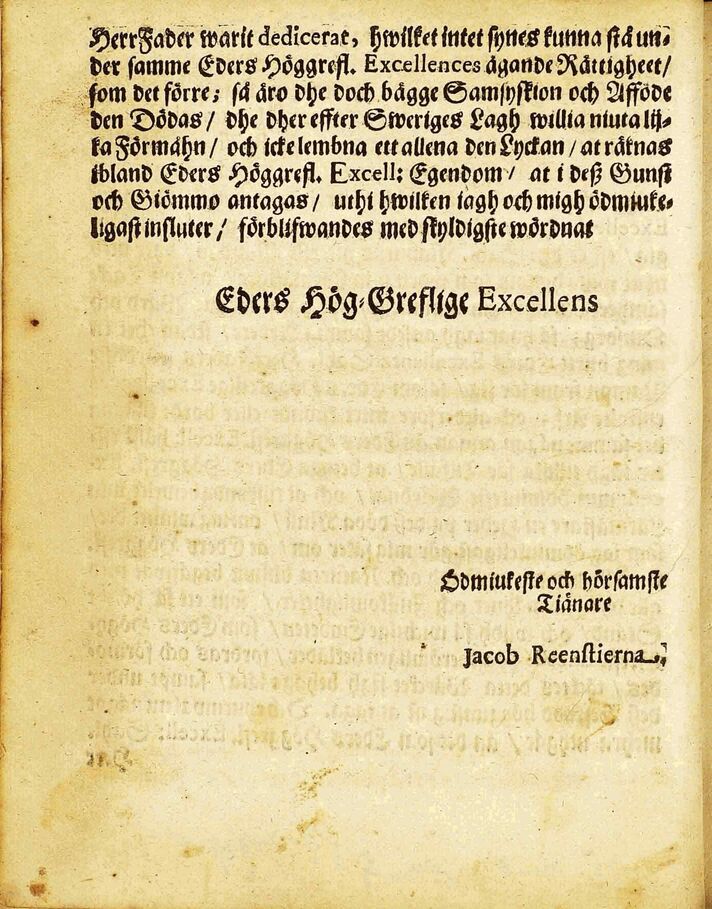 HerrFader warit dedicerat, hwilket intet synes kunna stå un-
der samme Eders Höggrefl. Excellences ägande Rättigheet/
som det förre; så äro dhe doch bägge Samsyskion och Afföde
den Dödas/ dhe dher effter Sweriges Lagh willia niuta lij-
ka Förmåhn/ och icke lembna ett allena den Lyckan/ at räknas
ibland Eders Höggrefl. Excell: Egendom/ at i deß Gunst
och Giömmo antagas/ uthi hwilken iagh och migh ödmiuke-
ligast insluter/ förblifwandes med skyldigste wördnat
Eders Hög-Greflige Excellens
Ödmiukeste och hörsamste
Tiänare
Jacob Reenstierna.